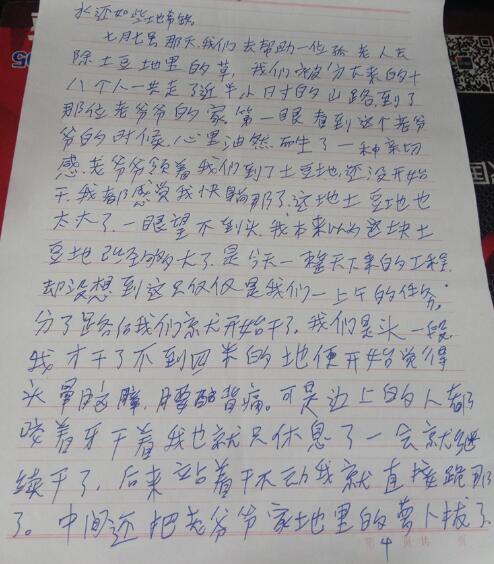 水还如此地常缺。
七月七号那天,我们去帮助一位孤老人去
除土豆地里的草,我们被分下来的十
八个人一共走了近半小时的山路,到了
那位老爷爷的家,第一眼看到这个老爷
爷的时候,心里油然而生了一种亲切
感,老爷爷领着我们到了土豆地,还没开始
干,我都感觉我快躺那了,这地土豆地也
太大了,一眼望不到头,我本来以为这块土
豆地已经够大了,是今天一整天下来的工程,
却没想到这只仅仅是我们一上午的任务,
分了路后我们就开始干了,我们是头一段
我才干了不到四米的地便开始觉得
头晕脑胀,腰酸背痛。可是边上的人都
咬着牙干着我也就只休息了一会就继
续干了,后来站着干不动我就直接跪那
了。中间还把老爷爷家地里的萝卜拔了,
第 4 页 共 页